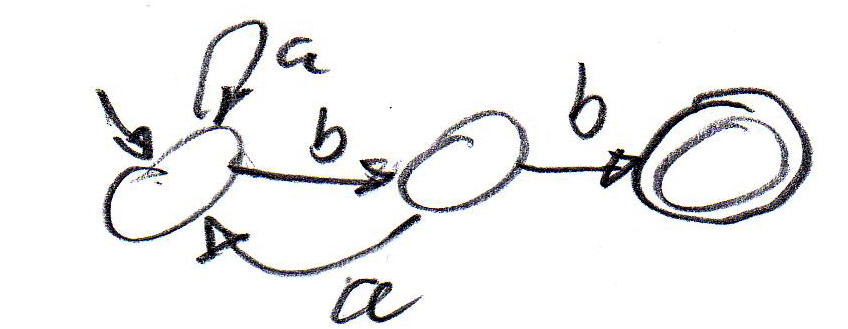 a
b
b
a